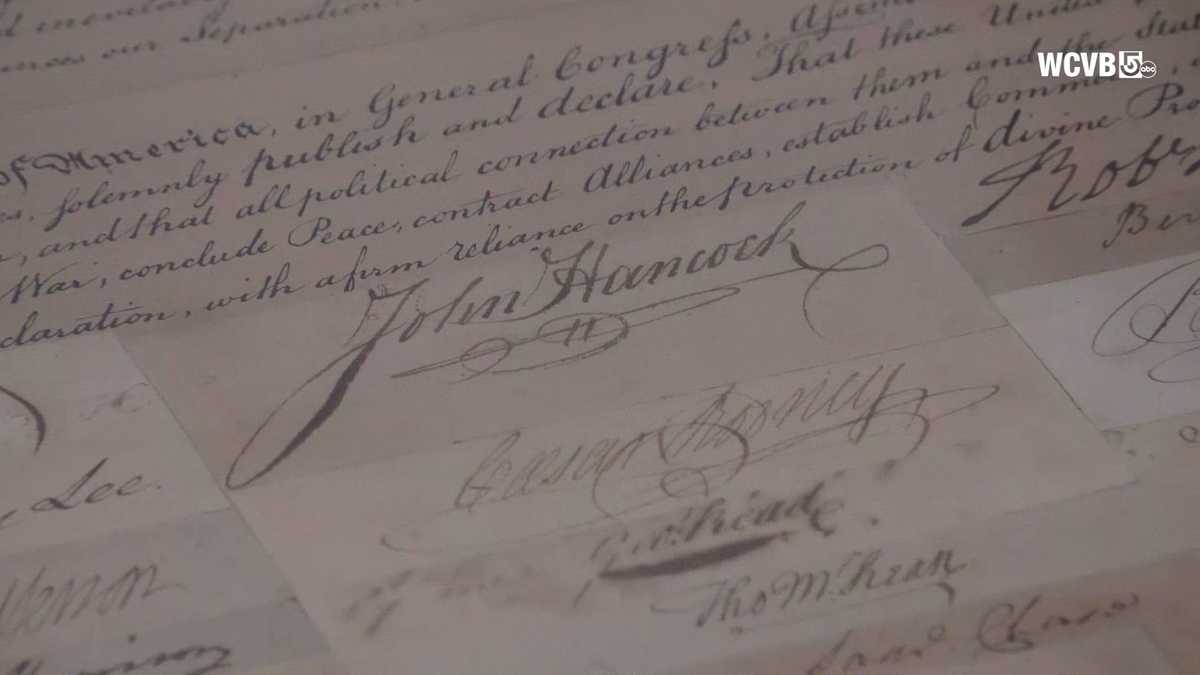 WCVB 5 abc
our Separation
of America, in General Congress, Assem
solemnly publish and declare, That these Unite
and that all political connection between them and the Stat
War, conclude Peace, contract Alliances, establish Comm
claration, with a firm reliance on the protection of divine Pro
John Hancock
Rob
Lee.
Caesar Rodney
Geo. Read
Tho M:Kean